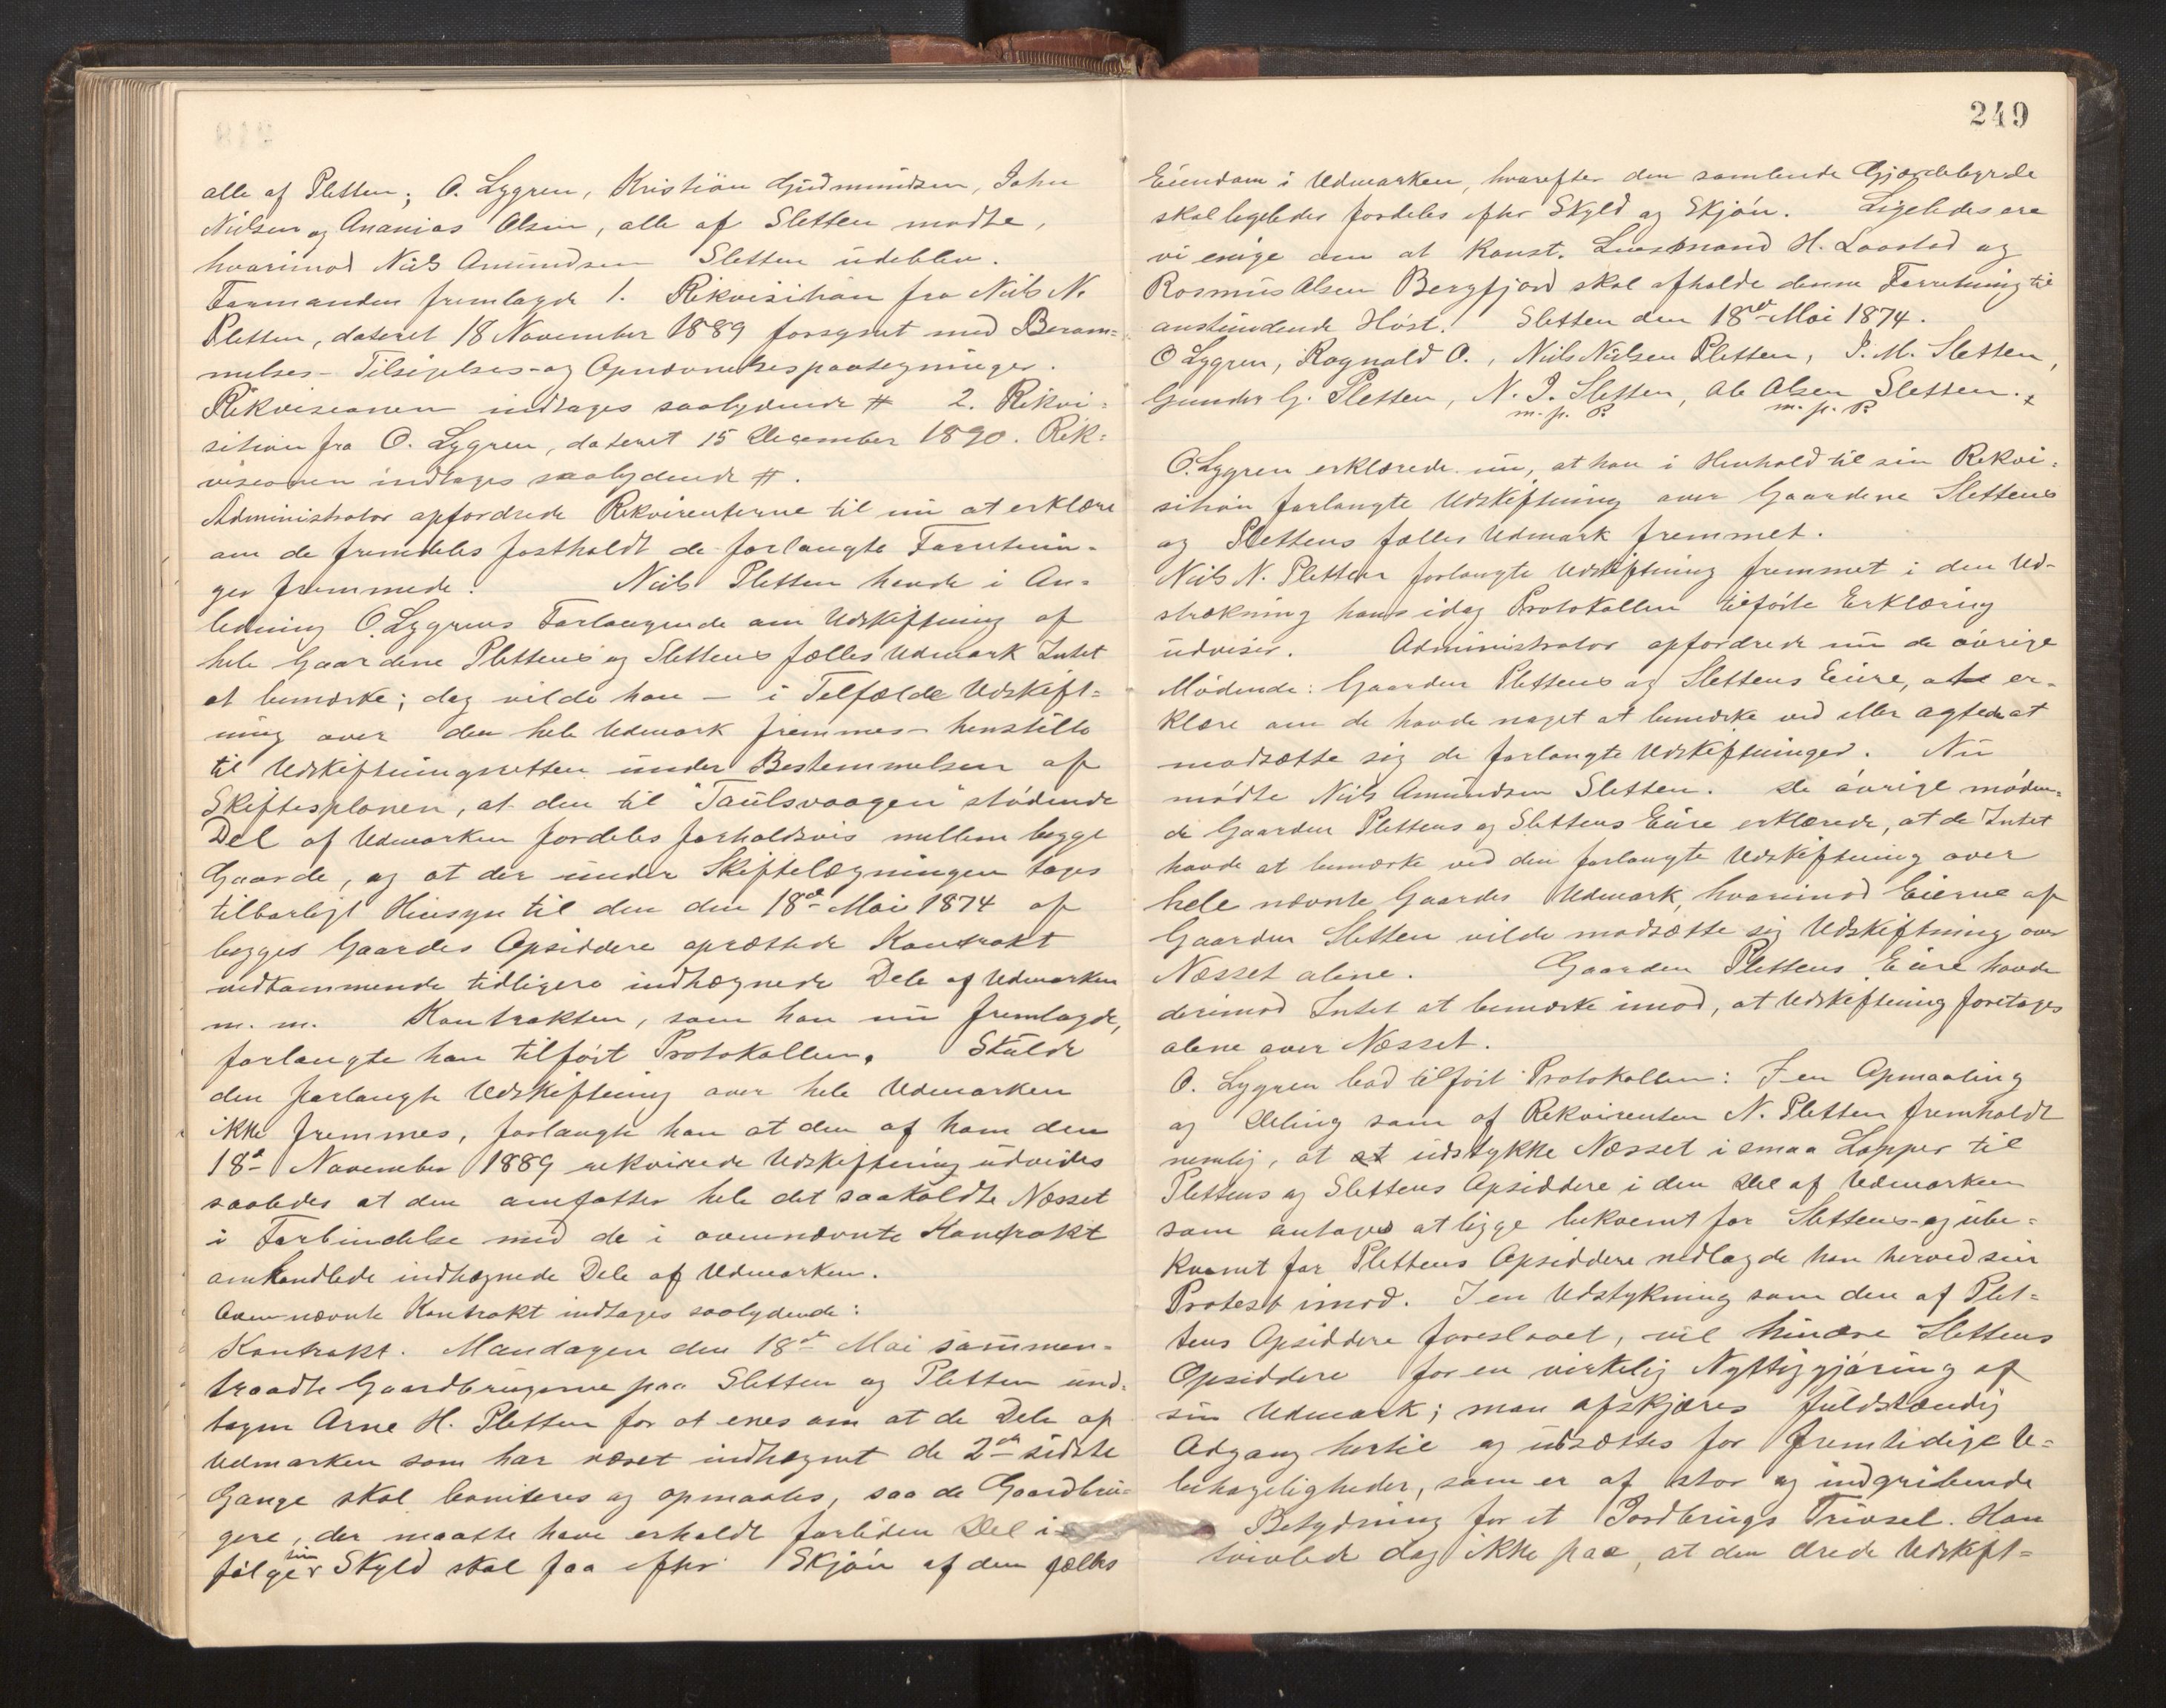 alle af Pletten; O. Lygren, Kristian Gudmundsen, John
Nielsen og Ananias Olsen, alle af Sletten mødte,
hvorimod Niels Amundsen Sletten udeblev.
Formanden fremlagde 1. Rekvisition fra Niels N.
Pletten, dateret 18 November 1889 forsynet med Beram=
melses- Tilsigelses- og Opnævnelsespaategninger.
Rekvisionen indtages saalydende # 2. Rekvi=
sition fra O. Lygren, dateret 15 December 1890. Rek=
visionen indtages saalydende #.
Administrator opfordrede Rekvirenterne til nu at erklære
om de fremdeles fastholdt de forlangte Forretnin-
ger fremmede. Niels Pletten havde i An=
ledning O. Lygrens Forlangende om Udskiftning af
hele Gaardene Plettens og Slettens fælles Udmark Intet
at bemærke; dog vilde han – i Tilfælde Udskift=
ning over den hele Udmark fremmes – henstille
til Udskiftningsretten under Bestemmelsen af
Skiftesplanen, at den til "Taulsvaagen" stødende
Del af Udmarken fordeles forholdsvis mellem begge
Gaarde, og at der under Skiftelægningen tages
tilbørligt Hensyn til den den 18de Mai 1874 af
begges Gaardes Opsiddere oprettede Kontrakt
vedkommende tidligere indhægnede Dele af Udmarken
m. m. Kontrakten, som han nu fremlagde,
forlangte han tilført Protokollen. Skulde
den forlangte Udskiftning over hele Udmarken
ikke fremmes, forlangte han at den af ham den
18de November 1889 rekvirerede Udskiftning udvides
saaledes at den omfatter hele det saakaldte Næsset
i Forbindelse med de i ovennævnte Kontrakt
omhandlede indhægnede Dele af Udmarken.
Ovennævnte Kontrakt indtages saalydende:
Kontrakt. Mandagen den 18de Mai sammen-
traadte Gaardbrugerne paa Sletten og Pletten und-
tagen Arne H. Pletten for at enes om at de Dele af
Udmarken som har været indhægnet de 2de sidste
Gange skal boniteres og opmaales, saa de Gaardbru=
gere, der maatte have erholdt forliden Del i-
følge sin Skyld skal faa efter Skjøn af den fælles
249
Eiendom i Udmarken, hvorefter den samlende Gjærdebyrde
skal ligeledes fordeles efter Skyld og Skjøn. Ligeledes ere
vi enige om at Konst. Lensmand H. Laastad og
Rasmus Olsen Bergfjord skal afholde denne Forretning til
anstundende Høst. Sletten den 18de Mai 1874.
O Lygren, Ragnald O., Niels Nielsen Pletten, J. M. Sletten,
Gunder G. Pletten, N. J. Sletten, Ole Olsen Sletten.
m. p. P. m. p. P.
O. Lygren erklærede nu, at han i Henhold til sin Rekvi=
sition forlangte Udskiftning over Gaardene Slettens
og Plettens fælles Udmark fremmet.
Niels N. Pletten forlangte Udskiftning fremmet i den Ud-
strækning hans idag Protokollen tilførte Erklæring
udviser. Administrator opfordrede nu de øvrige
Mødende: Gaarden Plettens og Slettens Eiere, at er-
klære om de havde noget at bemærke ved eller agtede at
modsætte sig de forlangte Udskiftninger. Nu
mødte Niels Amundsen Sletten. De øvrige møden=
de Gaarden Plettens og Slettens Eiere erklærede, at de Intet
havde at bemærke ved den forlangte Udskiftning over
hele nævnte Gaardes Udmark, hvorimod Eierne af
Gaarden Sletten vilde modsætte sig Udskiftning over
Næsset alene. Gaarden Plettens Eiere havde
derimod Intet at bemærke imod, at Udskiftning foretages
alene over Næsset.
O. Lygren bad tilført Protokollen: I en Opmaaling
og Deling som af Rekvirenten N. Pletten fremholdt
nemlig, at at udstykke Næsset i smaa Lapper til
Plettens og Slettens Opsiddere i den Del af Udmarken
som antages at ligge bekvemt for Slettens- og ube=
kvemt for Plettens Opsiddere nedlagde han herved sin
Protest imod. I en Udstykning som den af Plet=
tens Opsiddere foreslaaet, vil hindre Slettens
Opsiddere for en virkelig Nyttiggjøring af
sin Udmark; man afskjæres fuldstændig
Adgang hertil og udsættes for fremtidige U=
behageligheder, som er af stor og indgribende
Betydning for et Jordbrugs Trivsel. Han
tvivlede dog ikke paa, at den ærede Udskift=